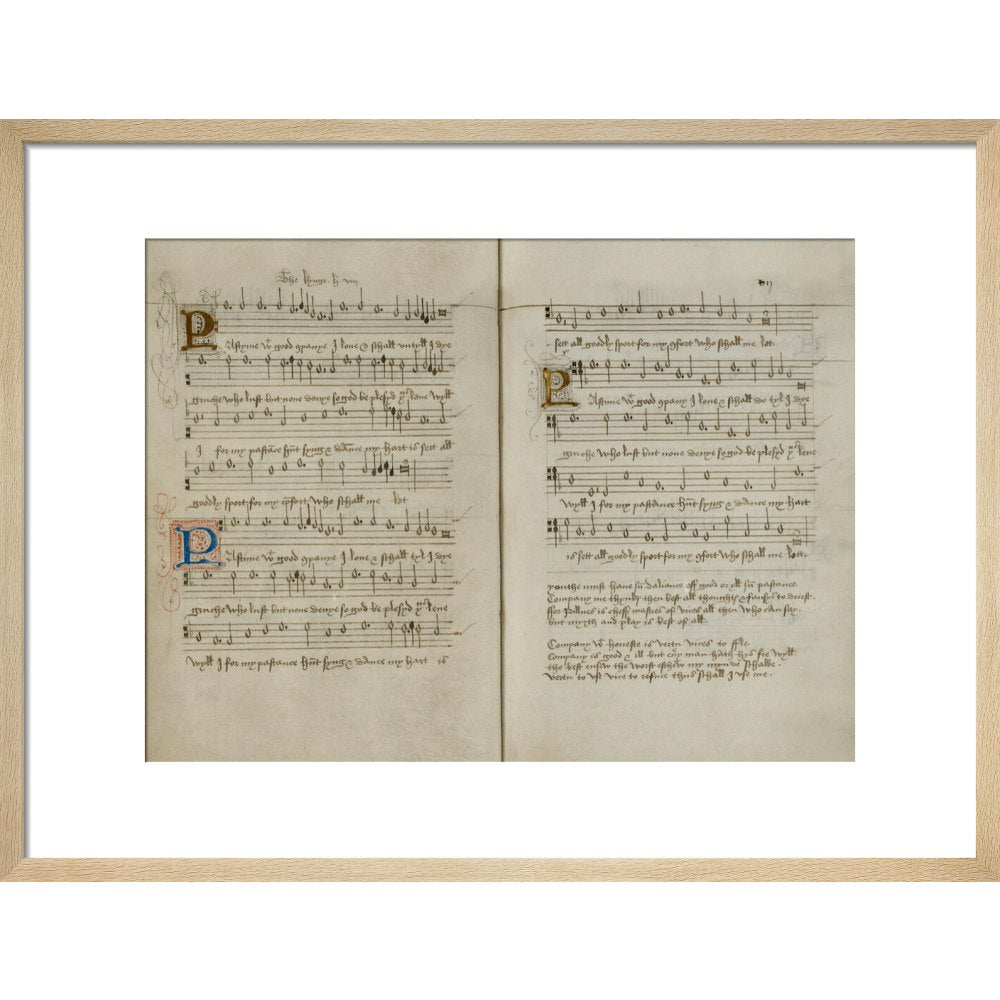 The kynge h viii
Pastyme wt good companye I love & schall untyll I dye
gruche who lust but none denye so god be plesyd thus leve wyll
I for my pastance hunt syng & dance my hart is sett all
goodly sport for my comfort who schall me let
Pastyme wt good companye I love & schall tyl I dye
gruche who lust but none denye so god be plesyd yus leve
wyll I for my pastance hunt syng & dance my hart is
sett all goodly sport for my cōfort who schall me let
Pastime wt good company I love & schall do tyl I dye
gruche who lust but none denye so god be plesyd yus leve
wyll I for my pastance hunt syng & dance my hart
is sett all goodly sport for my cōfort who schall me lett.
youthe must have sū daliance off good or yll sū pastance.
Company me thynks then best all thoughts & fansys to deiest.
ffor Idillnes is cheff mastres of vices all then who can say.
but myrth and play is best of all.
Company wt honeste is vertu vices to ffle.
Company is good & ill but evry man hath hys fre wyll.
the best ensew the worst eschew my mynde schalbe.
vertu to use vice to refuce thus schall I use me.